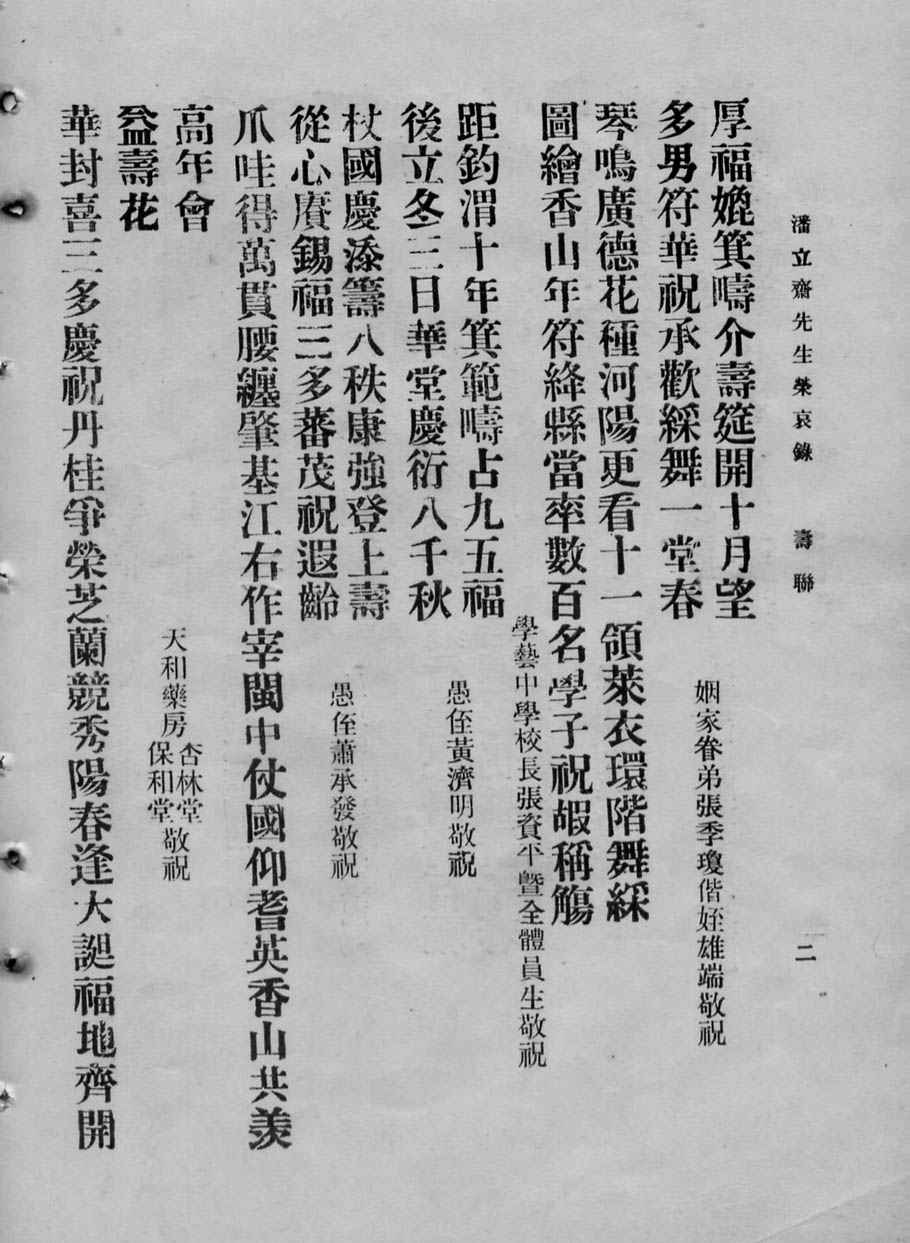 潘立齋先生榮哀錄　壽聯
二
厚福媲箕疇介壽筵開十月望
多男符華祝承歡綵舞一堂春
姻家眷弟張季瓊偕姪雄端敬祝
琴鳴廣德花種河陽更看十一領萊衣環階舞綵
圖繪香山年符絳縣當率數百名學子祝嘏稱觴
學藝中學校長張資平暨全體員生敬祝
距釣渭十年箕範疇占九五福
後立冬三日華堂慶衍八千秋
愚侄黃濟明敬祝
杖國慶添籌八秩康強登上壽
從心賡錫福三多蕃茂祝遐齡
愚侄蕭承發敬祝
爪哇得萬貫腰纏肇基江右作宰閩中仗國仰耆英香山共羨
高年會
益壽花
華封喜三多慶祝丹桂爭榮芝蘭競秀陽春逢大誕福地齊開
天和藥房杏林堂保和堂敬祝